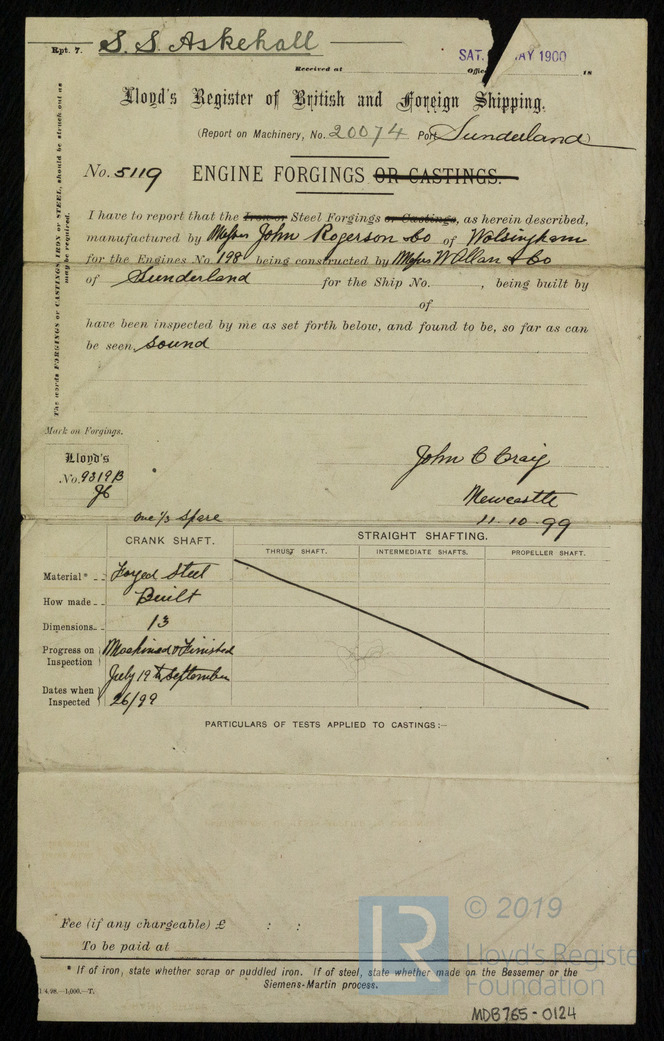 Rpt. 7. S. S. Askehall
SAT. MAY 1900
Received at Office 18
Lloyd's Register of British and Foreign Shipping.
(Report on Machinery, No. 20074 Port Sunderland
No. 5119 ENGINE FORGINGS OR CASTINGS.
I have to report that the Iron or Steel Forgings or Castings, as herein described,
manufactured by Messrs John Rogerson & Co of Wolsingham
for the Engines No. 198 being constructed by Messrs W Allan & Co
of Sunderland for the Ship No. , being built by
of
have been inspected by me as set forth below, and found to be, so far as can
be seen, sound
The words FORGINGS or CASTINGS, IRON or STEEL, should be struck out as
may be required.
Mark on Forgings.
Lloyd's
No. 9319B
John C Craig
Newcastle
11-10-99
one 1/3 spare
CRANK SHAFT. STRAIGHT SHAFTING.
THRUST SHAFT. INTERMEDIATE SHAFTS. PROPELLER SHAFT.
Material* Forged Steel
How made Built
Dimensions 13
Progress on Inspection Machined & Finished
July 19th September
Dates when Inspected 26/99
PARTICULARS OF TESTS APPLIED TO CASTINGS:—
Fee (if any chargeable) £ : :
To be paid at
* If of iron, state whether scrap or puddled iron. If of steel, state whether made on the Bessemer or the
Siemens-Martin process.
1/4.98.—1,000.—T.
LR
© 2019
Lloyd's Register
Foundation
MDB765-0124